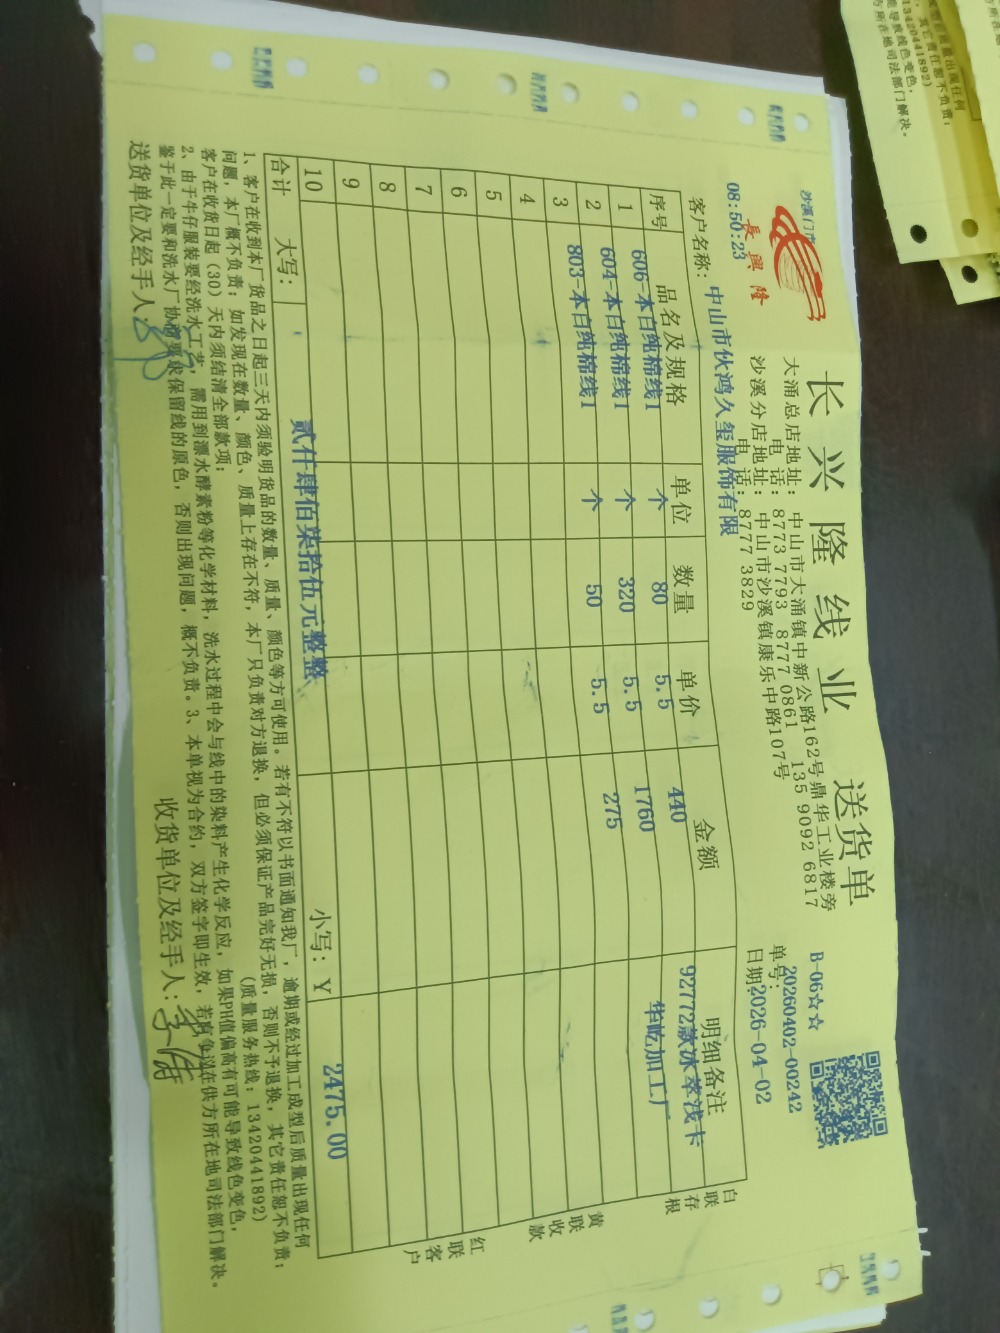 沙溪门市
長興隆
08:50:23
长兴隆线业 送货单
大涌总店地址: 中山市大涌镇中新公路162号鼎华工业楼旁
电 话: 8773 7793 8777 0861 135 9092 6817
沙溪分店地址: 中山市沙溪镇康乐中路107号
电 话: 8777 3829
B-06☆☆
单号: 20260402-00242
日期: 2026-04-02
客户名称: 中山市伙鸿久玺服饰有限
序号 品名及规格 单位 数量 单价 金额 明细备注
1 606-本白纯棉线1 个 80 5.5 440 92772款冰萃浅卡
2 604-本白纯棉线1 个 320 5.5 1760 华屹加工厂
3 803-本白纯棉线1 个 50 5.5 275
4
5
6
7
8
9
10
合计 大写: 贰仟肆佰柒拾伍元整整 小写: Y 2475.00
白联存根
黄联收款
红联客户
1、客户在收到本厂货品之日起三天内须验明货品的数量、质量、颜色等方可使用。若有不符以书面通知我厂, 逾期或经过加工成型后质量出现任何
问题, 本厂概不负责; 如发现在数量、颜色、质量上存在不符, 本厂只负责对方退换, 但必须保证产品完好无损, 否则不予退换, 其它责任恕不负责;
客户在收货日起 (30) 天内须结清全部款项; (质量服务热线: 13420441892)
2、由于牛仔服装要经洗水工艺, 需用到漂水酵素粉等化学材料, 洗水过程中会与线中的染料产生化学反应, 如果PH值偏高有可能导致线色变色,
鉴于此一定要和洗水厂协商要求保留线的原色, 否则出现问题, 概不负责。3、本单视为合约, 双方签字即生效, 若有争议在供方所在地司法部门解决。
送货单位及经手人: 收货单位及经手人:
出现任何
其它责任恕不负责;
13420441892)
能导致线色变色,
方所在地司法部门解决。